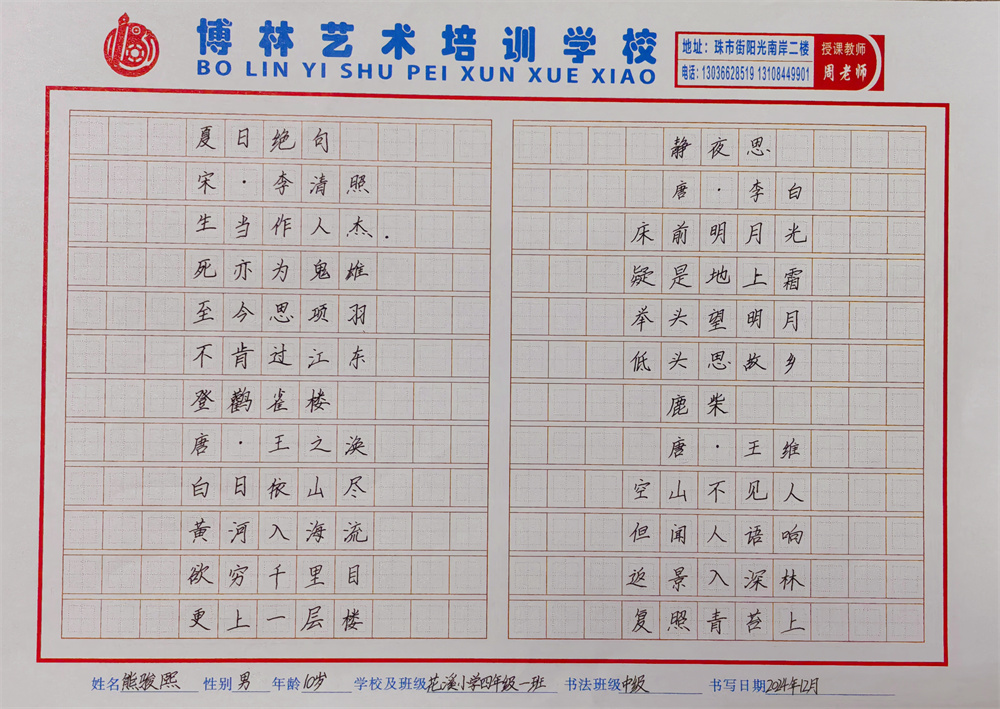 博林艺术培训学校
BO LIN YI SHU PEI XUN XUE XIAO
地址：珠市街阳光南岸二楼
电话：13036628519 13108449901
授课教师
周老师
夏日绝句
宋·李清照
生当作人杰.
死亦为鬼雄
至今思项羽
不肯过江东
登鹳雀楼
唐·王之涣
白日依山尽
黄河入海流
欲穷千里目
更上一层楼
静夜思
唐·李白
床前明月光
疑是地上霜
举头望明月
低头思故乡
鹿柴
唐·王维
空山不见人
但闻人语响
返景入深林
复照青苔上
姓名熊骏熙 性别男 年龄10岁 学校及班级花溪小学四年级一班 书法班级中级 书写日期2024年12月